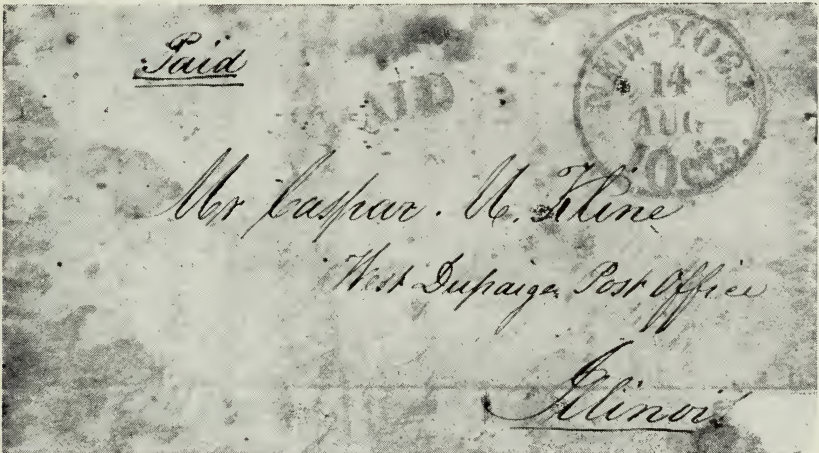 Paid
PAID
NEW-YORK
14
AUG
10cts.
Mr Caspar. M. Kline
West Dupaige Post Office
Illinois